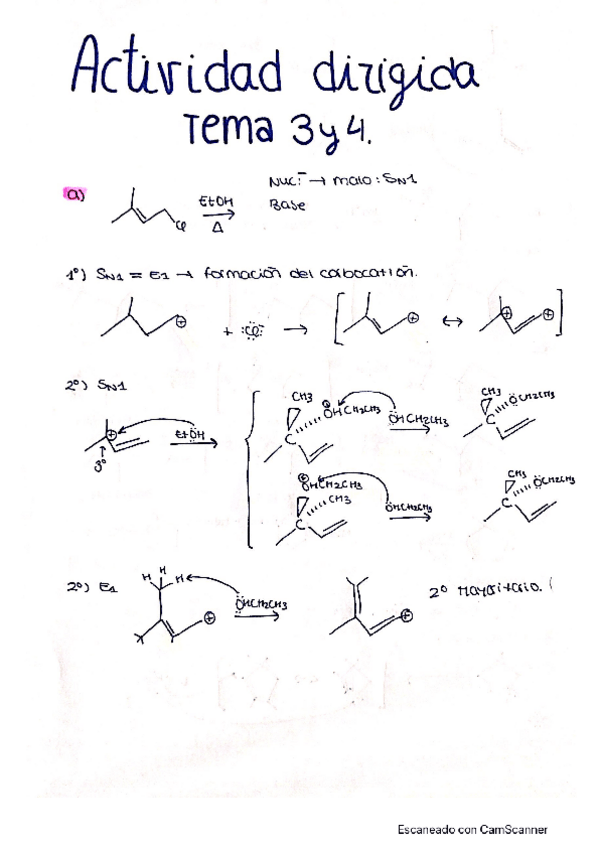 Actividad dirigida
Tema 3 y 4.
a)
EtOH
Δ
Cl
Nuc:⁻ → malo: SN1
Base
1º) SN1 = E1 → formación del carbocatión.
⊕ + :Cl: → [ ⊕ ↔ ⊕ ⊕ ]
2º) SN1
⊕
3º
EtÖH
CH3
C
⊕
ÖHCH2CH3
ÖHCH2CH3
CH3
C
ÖCH2CH3
⊕
ÖHCH2CH3
CH3
C
ÖHCH2CH3
CH3
C
ÖCH2CH3
2º) E1
H H H
⊕
ÖHCH2CH3
⊕
2º Mayoritario.
Escaneado con CamScanner